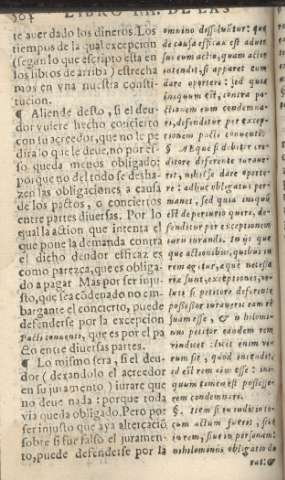 LIBRO IIII. DE LAS
te auer dado los dineros. Los
tiempos de la qual excepcion
(segun lo que escripto esta en
los libros de arriba) estrecha
mos en vna nuestra consti-
tucion.
¶ Aliende desto, si el deu-
dor vuiere hecho concierto
con su acreedor, que no le pe
dira lo que le deue, no por es-
so queda menos obligado:
porque no del todo se desha-
zen las obligaciones a causa
de los pactos, o conciertos
entre partes diuersas. Por lo
qual la action que intenta el
que pone la demanda contra
el dicho deudor efficaz es
como parezca, que es obliga-
do a pagar. Mas por ser inju-
sto, que sea cõdenado no em-
bargante el concierto, puede
defenderse por la excepcion
Pacti conuenti, que es por el pa
cto entre diuersas partes.
¶ Lo mismo sera, si el deu-
dor (dexandolo el acreedor
en su juramento) iurare que
no deue nada: porque toda
via queda obligado. Pero por
ser injusto que aya altercaciõ
sobre si fue falso el juramen-
to, puede defenderse por la
omnino dissoluũtur: que
de causa efficax est aduer
sus eum actio, quam actor
intendit, si apparet eum
dare oportere: sed quia
iniquum est, contra pa-
ctionem eum condemna-
ri, defenditur per excep-
tionem pacti conuenti.
§ AEque si debitor cre-
ditore deferente iurauerit,
nihil se dare oporte-
re: adhuc obligatus per-
manet, sed quia iniquũ
est de periurio quæri, de-
fenditur per exceptionem
iuris iurandi. In ijs quo
que actionibus, quibus in
rem agitur, æquè necessa
riæ sunt exceptiones, ve-
luti si petitore deferente
possessor iurauerit eam rẽ
suam esse, & nihilomi-
nus petitor eandem rem
vindicet: licet enim ve-
rum sit, quod intendit,
id est rem eius esse: ini-
quum tamen est possesso-
rem condemnari.
§. Item si in iudicio te-
cum actum fuerit, siue
in rem, siue in personam:
nihilominus obligatio du
rat: &